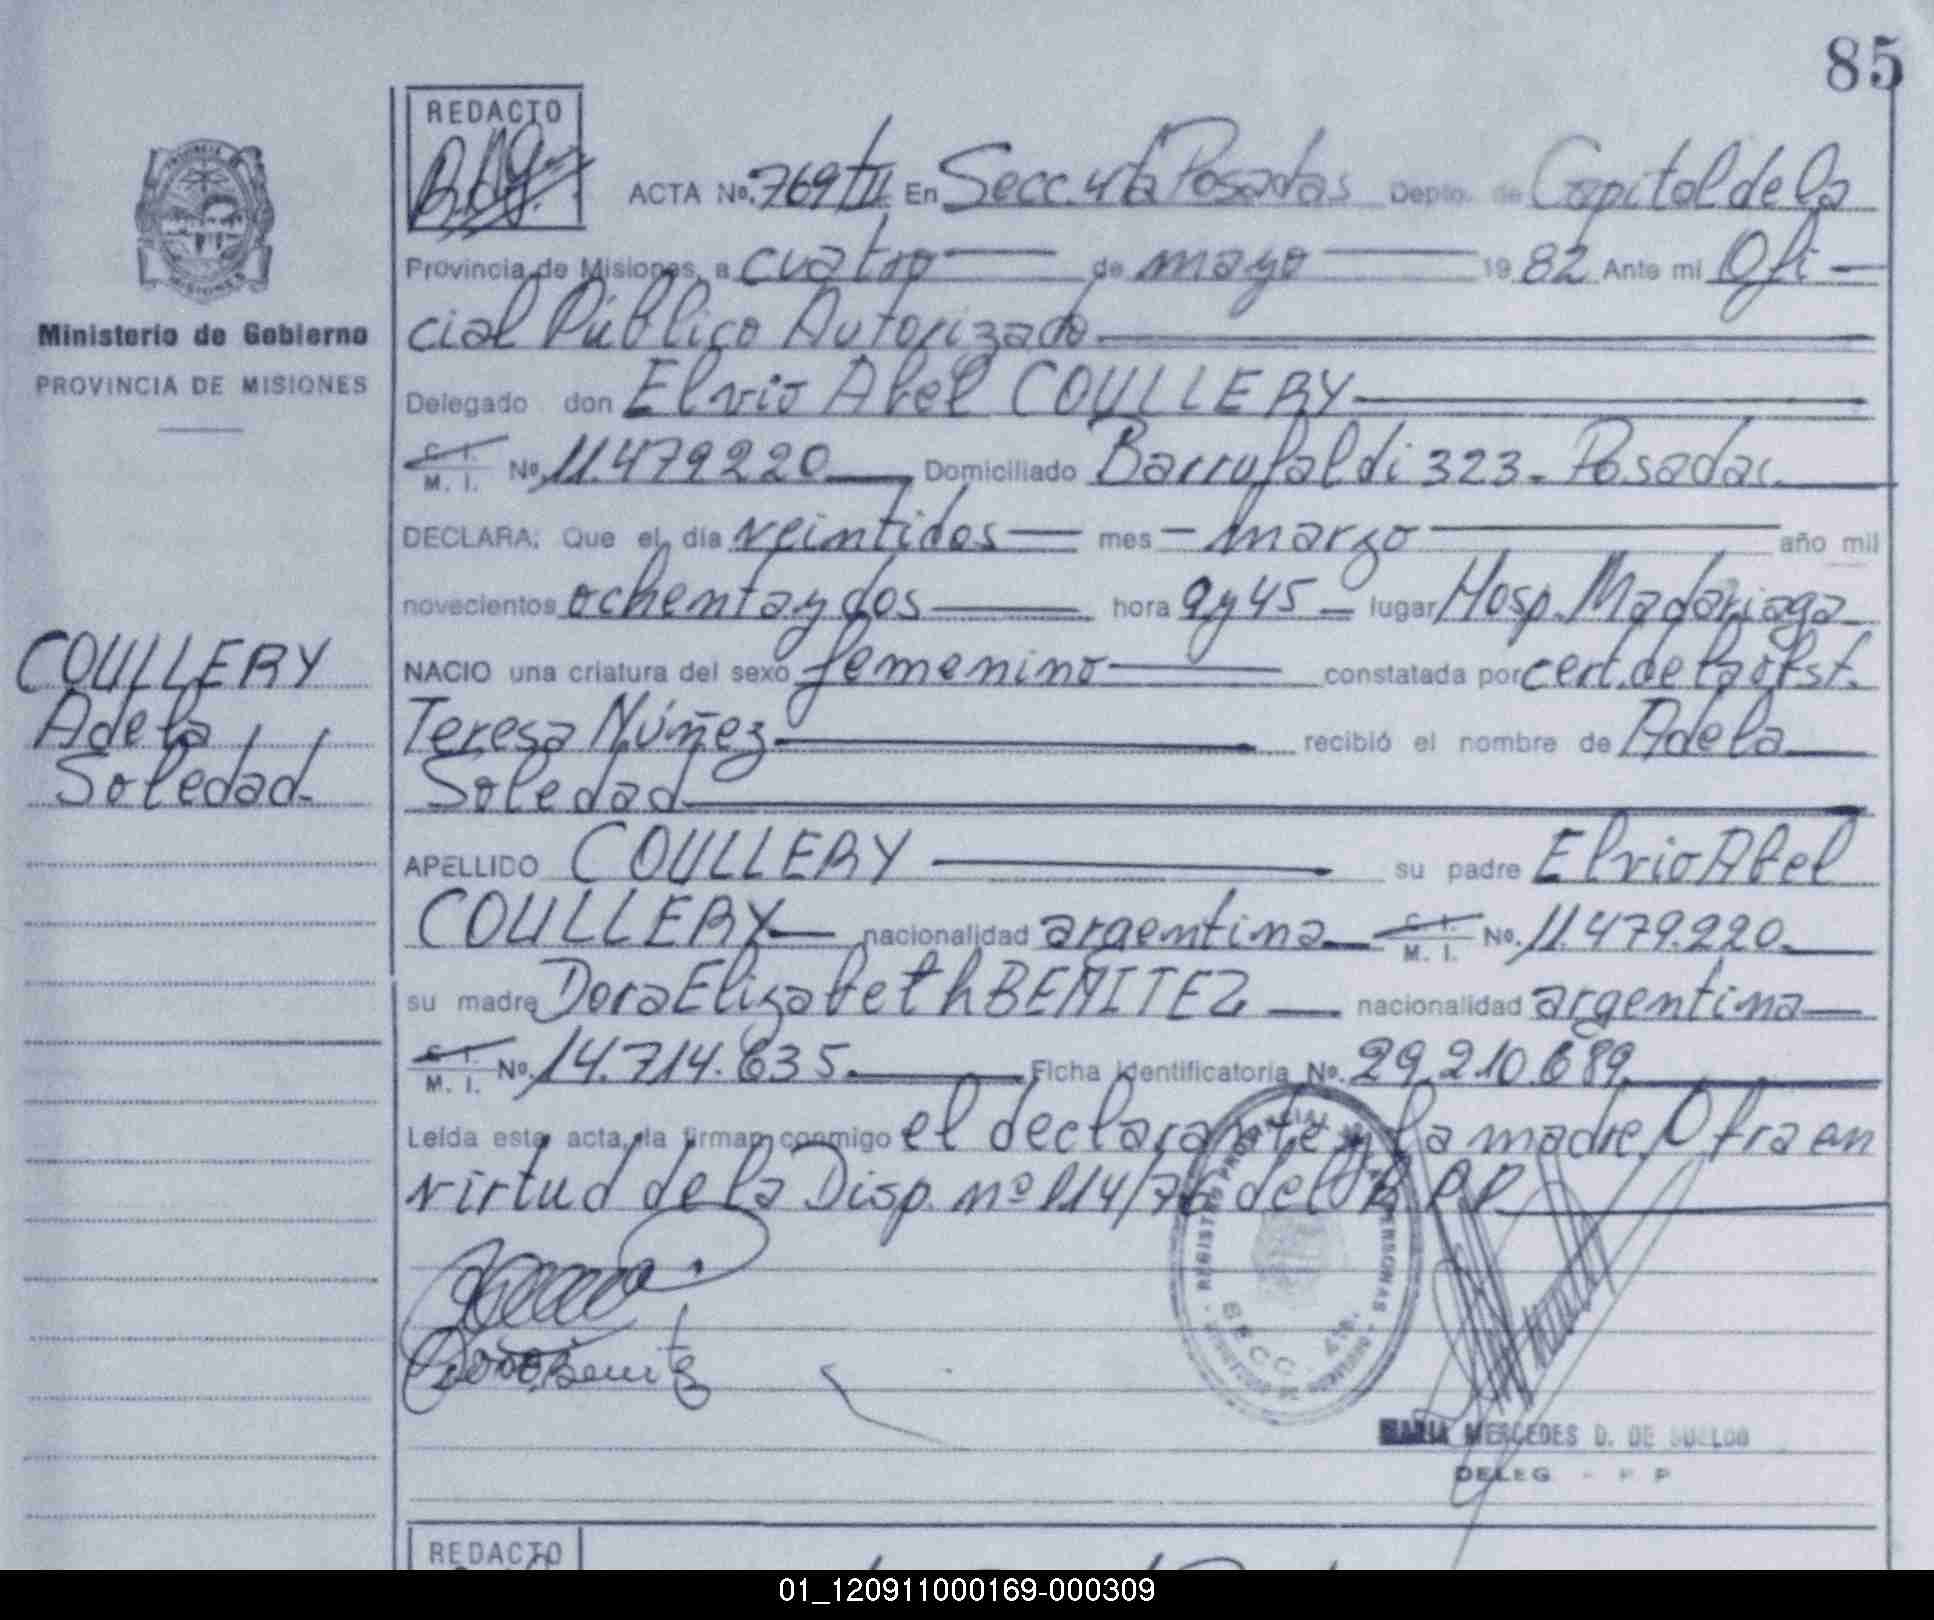 85
REDACTO
ACTA Nº. 769/II En Secc. 4ta Posadas Depto. de Capital de la
Provincia de Misiones, a cuatro de mayo 1982 Ante mi Ofi-
cial Público Autorizado
Ministerio de Gobierno
PROVINCIA DE MISIONES
Delegado don Elvio Abel COULLERY
C. I.
M. I. Nº. 11.479220 Domiciliado Barrufaldi 323 - Posadas.
DECLARA: Que el día veintidos mes - marzo año mil
novecientos ochenta y dos hora 9 y 45 - lugar Hosp. Madariaga
COULLERY
Adela
Soledad
NACIO una criatura del sexo femenino constatada por cert. de la obst.
Teresa Núñez recibió el nombre de Adela
Soledad
APELLIDO COULLERY su padre Elvio Abel
COULLERY nacionalidad argentina C. I.
M. I. Nº. 11.479.220.
su madre Dora Elizabeth BENITEZ nacionalidad argentina
C. I.
M. I. Nº. 14.714.635. Ficha identificatoria Nº. 29.210.689
Leída esta acta, la firman conmigo el declarante y la madre. Obra en
virtud de la Disp. nº 114/76 del R.P.P.
Dora E. Benitez
REGISTRO PROVINCIAL DE LAS PERSONAS
MARIA MERCEDES D. DE SUELDO
DELEG - P P
REDACTO
01_120911000169-000309